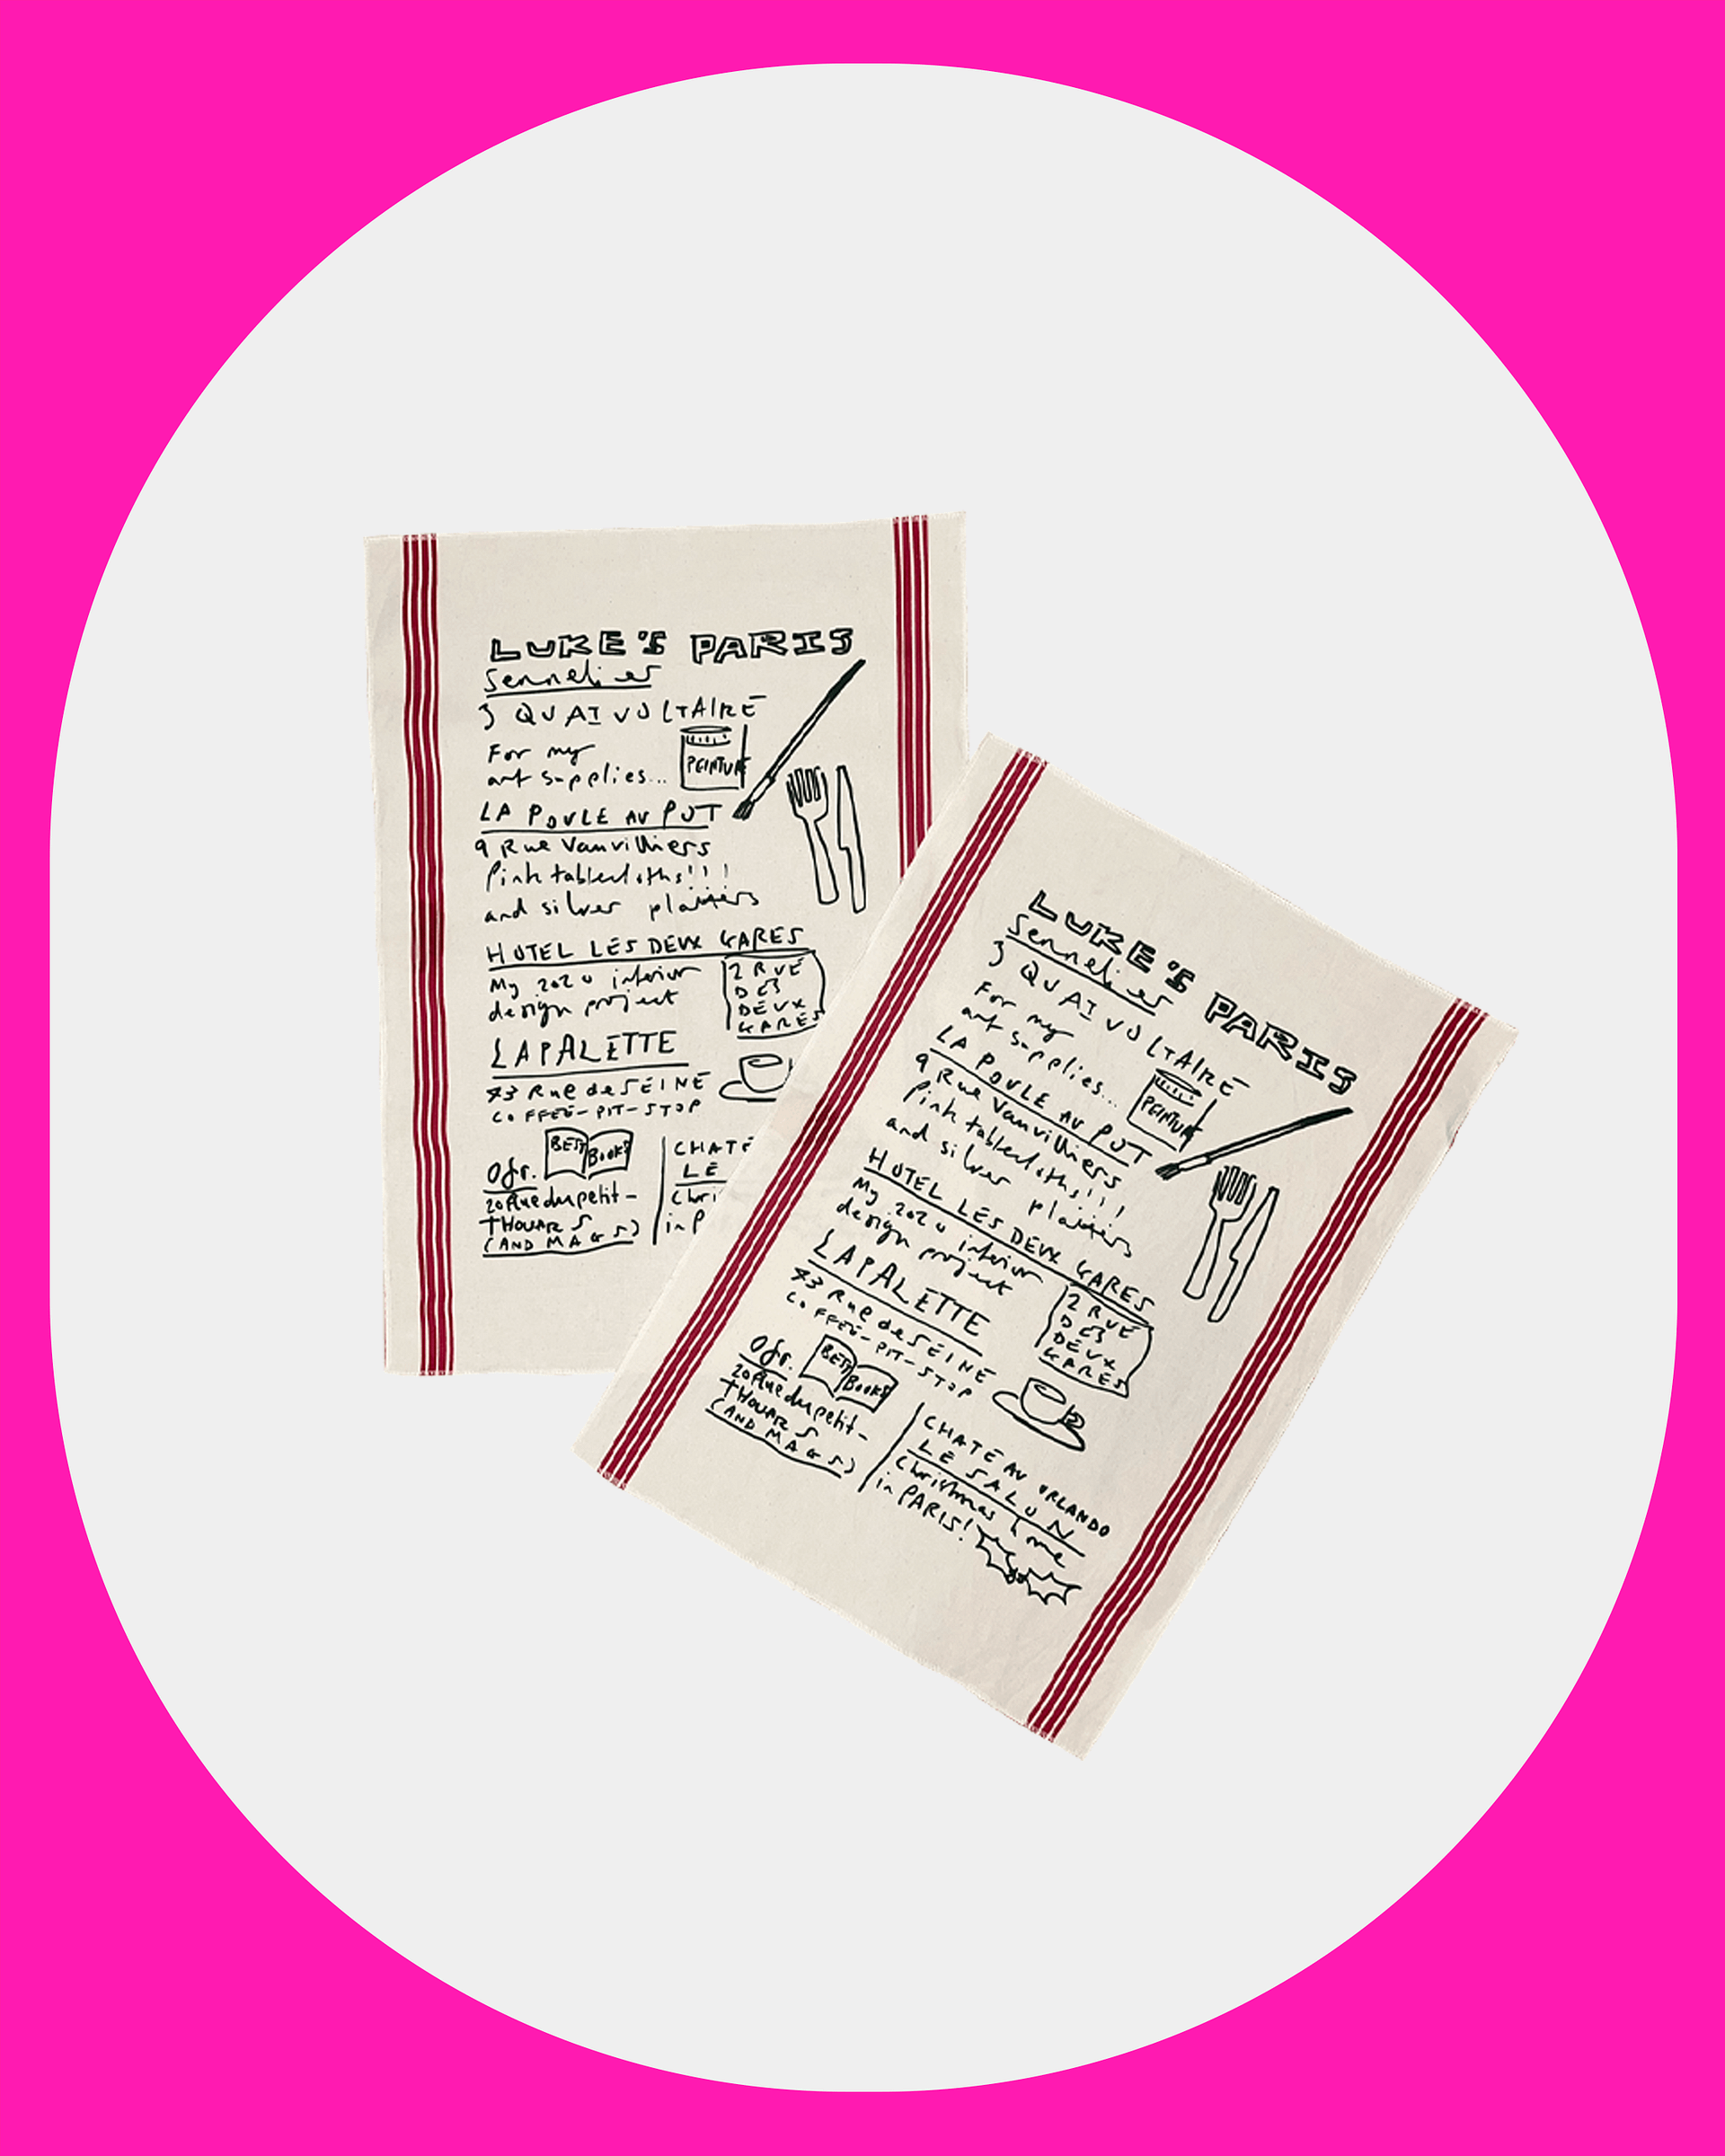 LUKE'S PARIS
Sennelier
3 QUAI VOLTAIRE
For my
art supplies...
PEINTURE
LA POULE AU POT
9 Rue Vanvilliers
Pink tablecloths!!!
and silver platters
HOTEL LES DEUX GARES
My 2020 interior
design project
2 RUE
DES
DEUX
GARES
LA PALETTE
43 Rue de SEINE
COFFEE-PIT-STOP
BEST BOOKS
Ofr.
20 Rue du petit-
THOUARS
(AND MAGS)
CHATE
LE
Chri
in P
LUKE'S PARIS
Sennelier
3 QUAI VOLTAIRE
For my
art supplies...
PEINTURE
LA POULE AU POT
9 Rue Vanvilliers
Pink tablecloths!!!
and silver platters
HOTEL LES DEUX GARES
My 2020 interior
design project
2 RUE
DES
DEUX
GARES
LA PALETTE
43 Rue de SEINE
COFFEE-PIT-STOP
BEST BOOKS
Ofr.
20 Rue du petit-
THOUARS
(AND MAGS)
CHATEAU ORLANDO
LE SALON
Christmas Time
in PARIS!